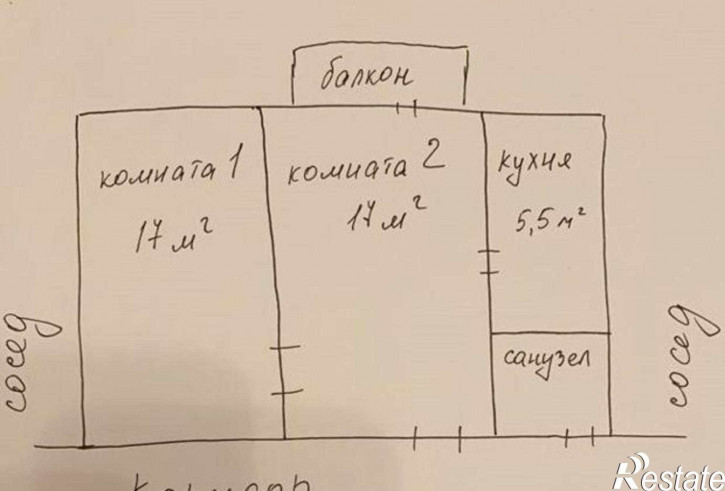 балкон
комната 1
17 м²
комната 2
17 м²
кухня
5,5 м²
санузел
сосед
сосед
Restate